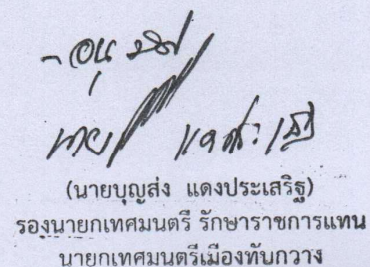 - อนุมัติ
(นายบุญส่ง แดงประเสริฐ)
รองนายกเทศมนตรี รักษาราชการแทน
นายกเทศมนตรีเมืองทับกวาง